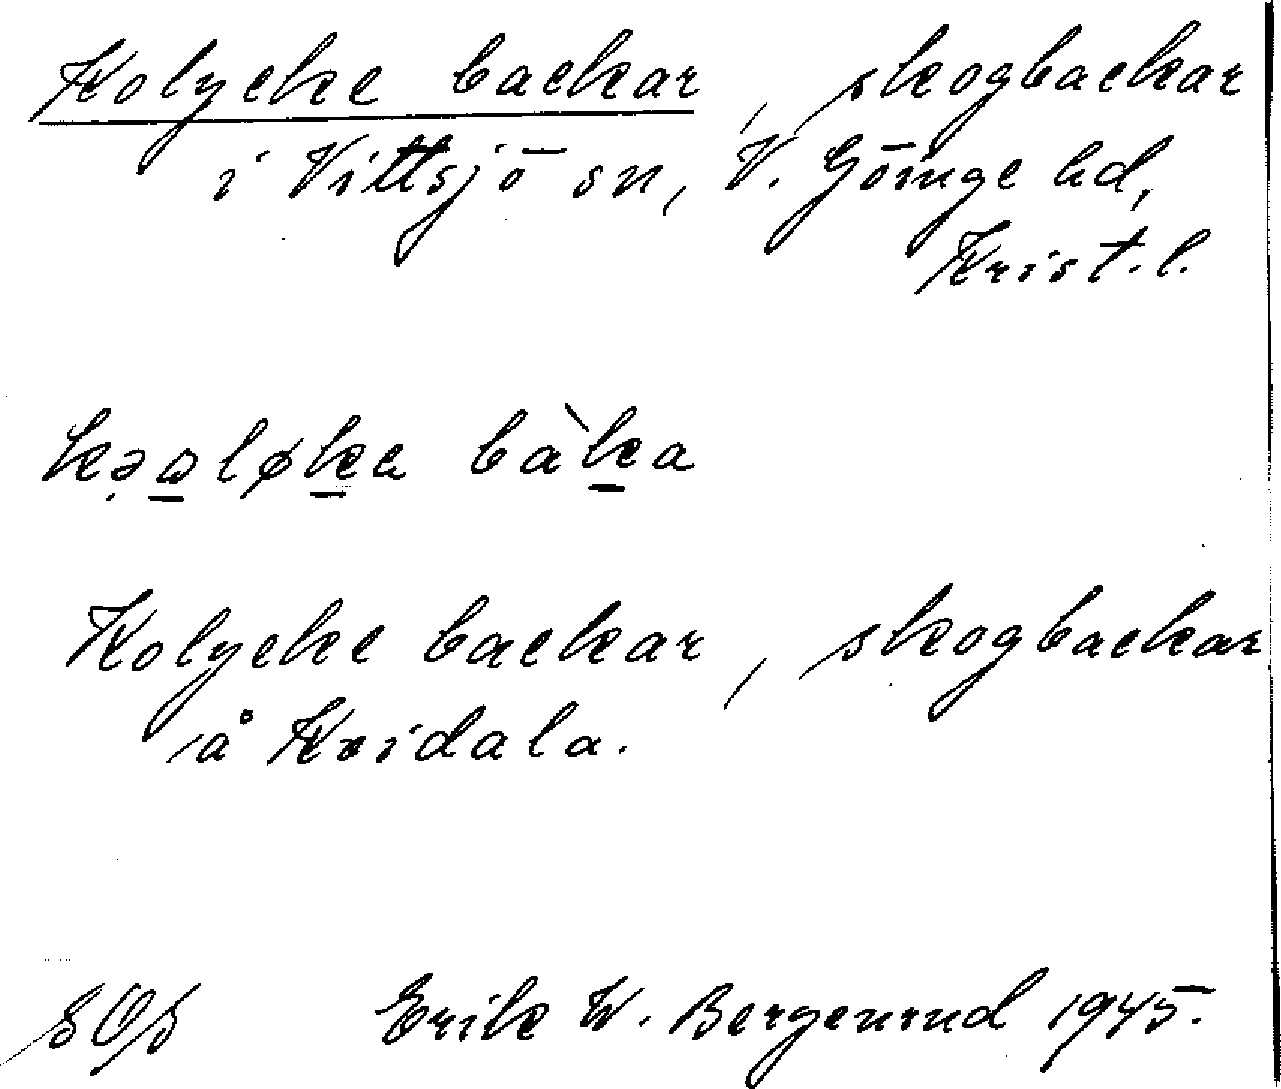 Kolycke backar, skogbackar
i Vittsjö sn, V. Göinge hd,
Krist. l.
kə̣a̱løḵa bàḵa
Kolycke backar, skogbackar
å Kvidala.
SOS Erik W. Bergenrud 1945.